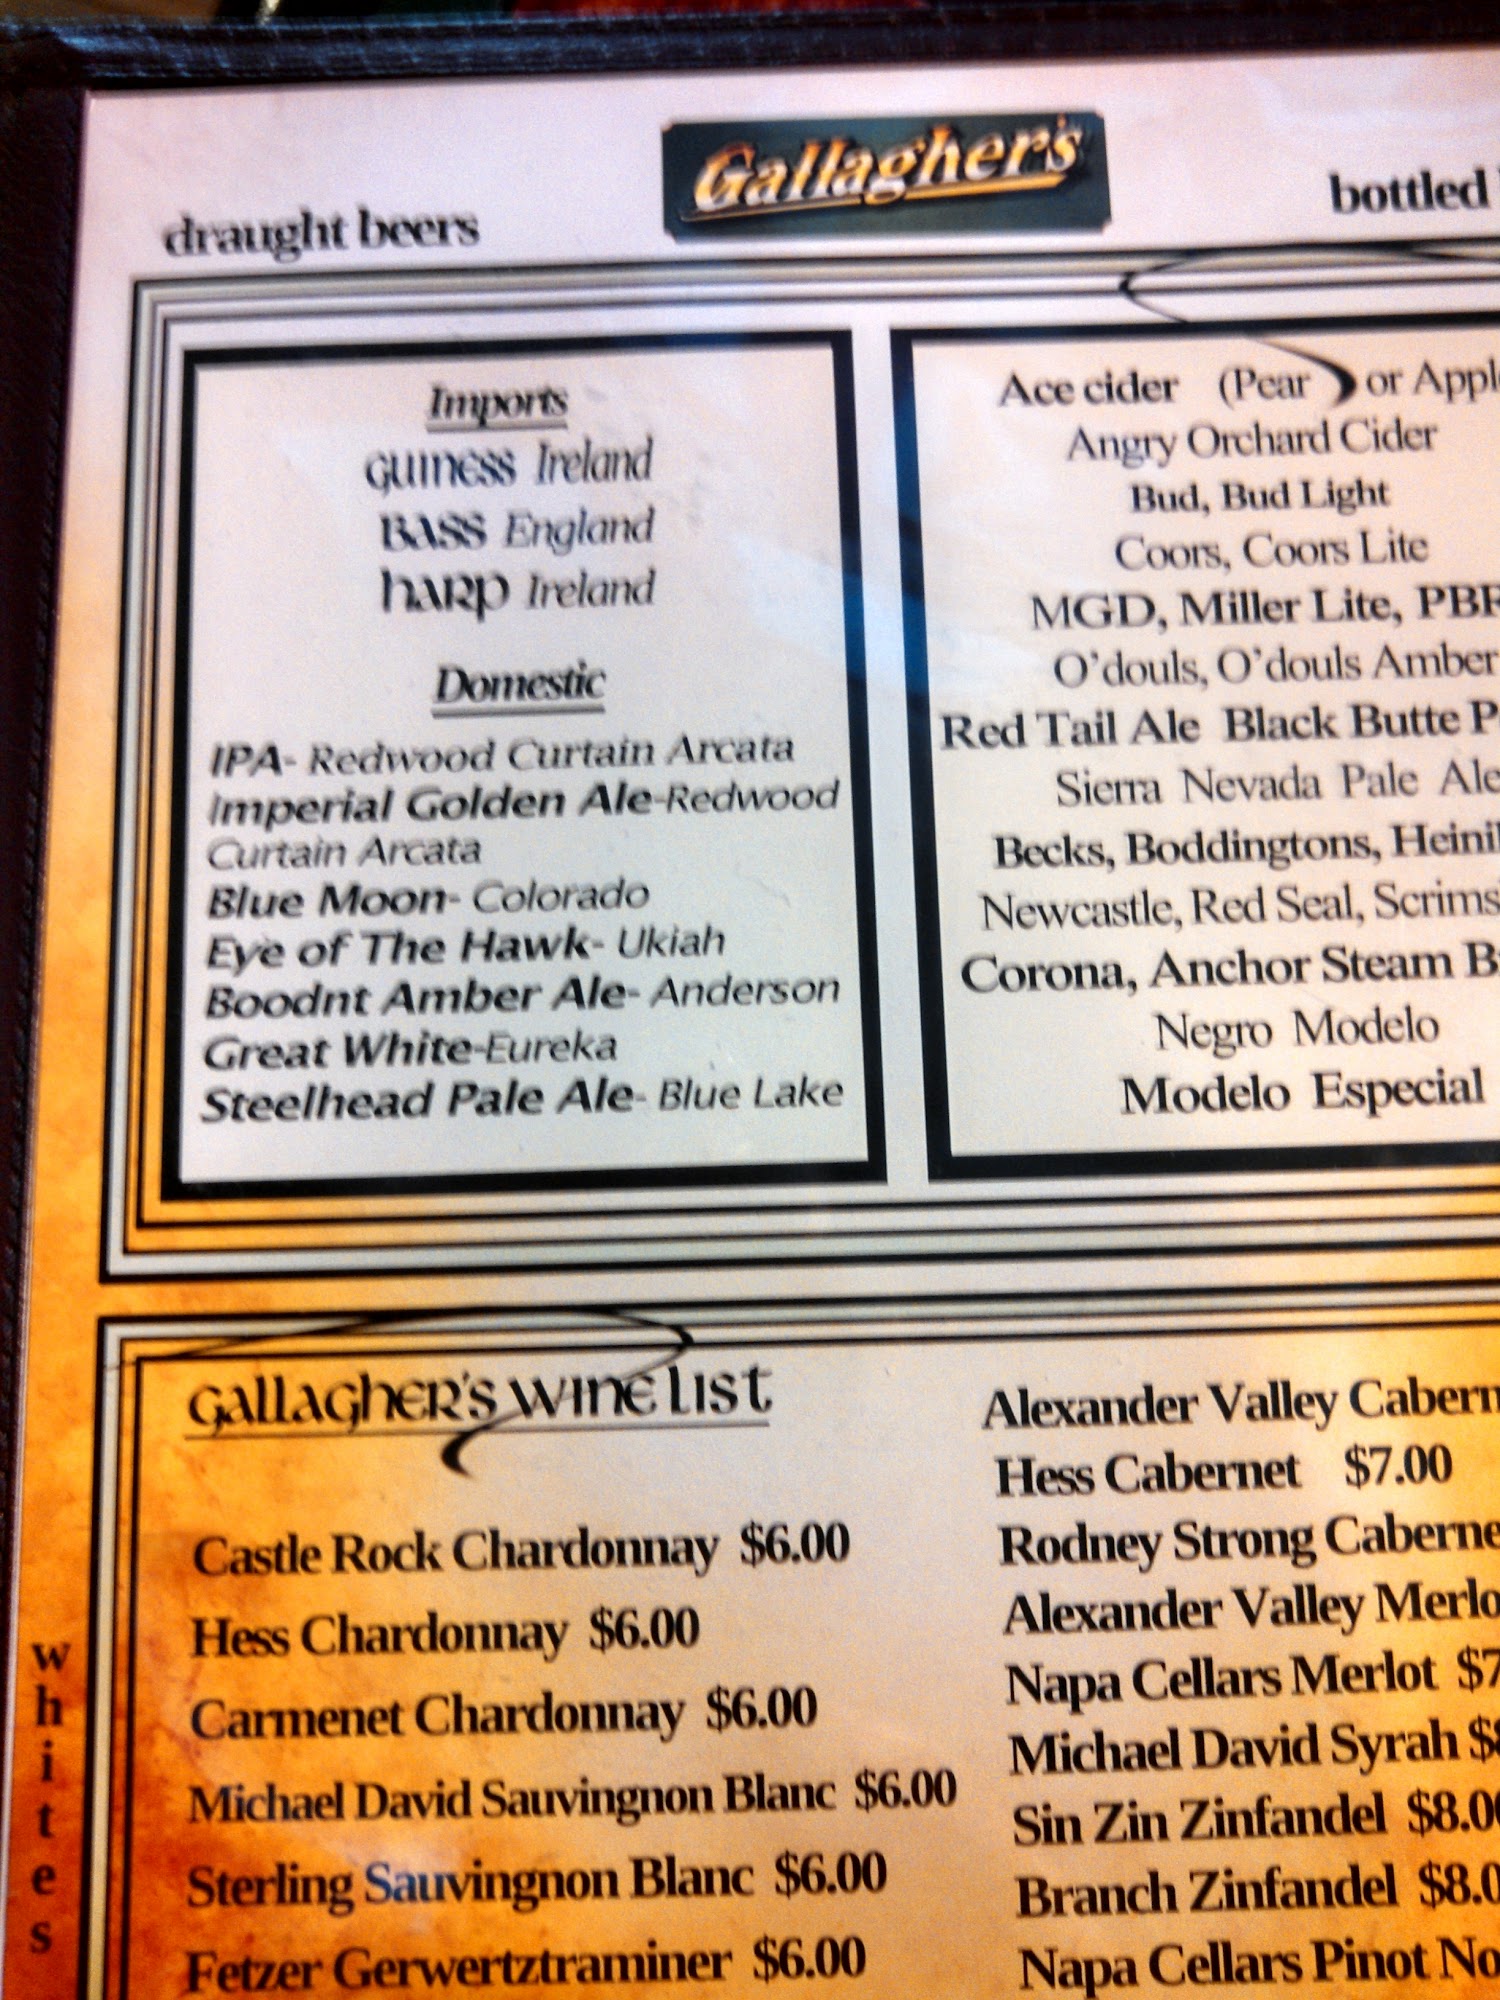 Gallagher's
draught beers
bottled
Imports
Guiness Ireland
BASS England
harp Ireland
Domestic
IPA- Redwood Curtain Arcata
Imperial Golden Ale-Redwood
Curtain Arcata
Blue Moon- Colorado
Eye of The Hawk- Ukiah
Boodnt Amber Ale- Anderson
Great White-Eureka
Steelhead Pale Ale- Blue Lake
Ace cider (Pear or
Angry Orchard Cider
Bud, Bud Light
Coors, Coors Lite
MGD, Miller Lite,
O'douls, O'douls Amber
Red Tail Ale Black Butte
Sierra Nevada Pale Ale
Becks, Boddingtons,
Newcastle, Red Seal,
Corona, Anchor Steam
Negro Modelo
Modelo Especial
Gallagher's Wine List
whites
Castle Rock Chardonnay $6.00
Hess Chardonnay $6.00
Carmenet Chardonnay $6.00
Michael David Sauvingnon Blanc $6.00
Sterling Sauvingnon Blanc $6.00
Fetzer Gerwertztraminer $6.00
Alexander Valley
Hess Cabernet $7.00
Rodney Strong
Alexander Valley
Napa Cellars Merlot
Michael David Syrah
Sin Zin Zinfandel
Branch Zinfandel
Napa Cellars Pinot